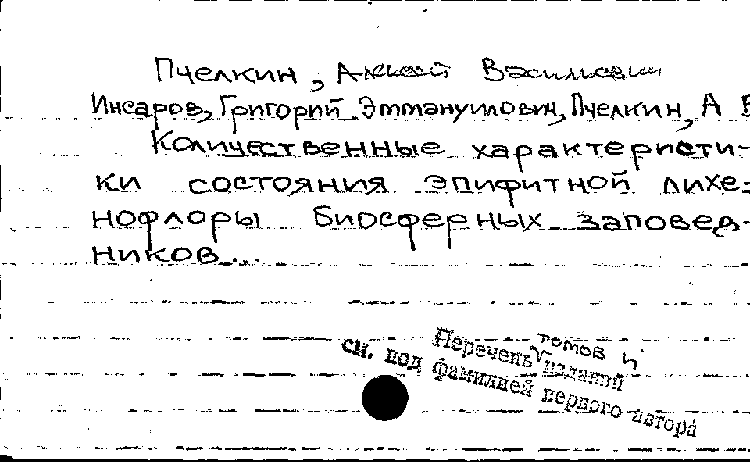 Пчелкин, Алексей Васильевич
Инсаров, Григорий Эммануилович, Пчелкин, А В
Количественные характеристи-
ки состояния эпифитной лихе-
нофлоры биосферных заповед-
ников...
томов и
Перечень изданий
см. под фамилией первого автора